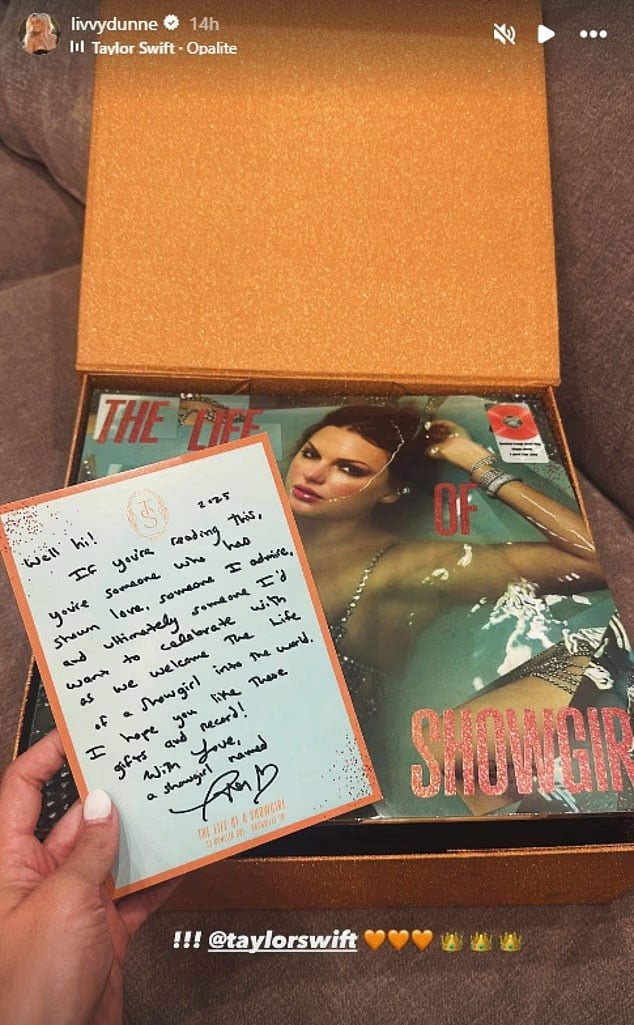 livvydunne 14h
Taylor Swift · Opalite
THE LIFE
OF
SHOWGIR
TS
2025
Well hi!
If you're reading this,
you're someone who has
shown love, someone I admire,
and ultimately someone I'd
want to celebrate with
as we welcome The Life
of a Showgirl into the world.
I hope you like these
gifts and record!
With Love,
a showgirl named
THE LIFE OF A SHOWGIRL
!!! @taylorswift 🧡🧡🧡 👑👑👑